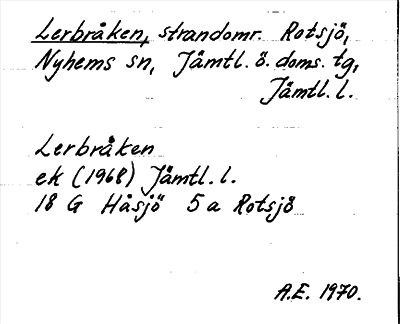 Lerbråken, strandomr. Rotsjö,
Nyhems sn, Jämtl. ö. doms. tg,
Jämtl. l.
Lerbråken
ek (1968) Jämtl. l.
18 G Håsjö 5 a Rotsjö
A.E. 1970.